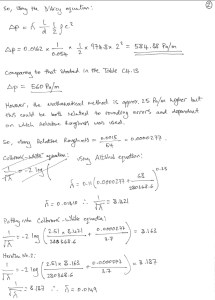 ②
So, using the D'Arcy equation:
Δp = λ l/d 1/2 ρ c²
Δp = 0.0162 × 1/0.054 × 1/2 × 974.8 × 2² = 584.88 Pa/m
Comparing to that stated in the Table C4.13
Δp = 560 Pa/m
However, the mathematical method is approx. 25 Pa/m higher but
this could be both related to rounding errors and dependent
on which relative Roughness was used.
So, using Relative Roughness = 0.0015/54 = 0.0000277
Colebrook-White equation: Using Altshul equation:
1/√λ = -2 log (
λ = 0.11 (0.0000277 + 68/280368.6)^0.25
λ = 0.01 ∴ 1/√λ = 8.321
Putting into Colebrook-White equation:
1/√λ = -2 log (2.51 × 8.321/280368.6 + 0.0000277/3.7) = 8.163
Iteration no. 2:
1/√λ = -2 log (2.51 × 8.163/280368.6 + 0.0000277/3.7) = 8.187
1/√λ = 8.187 ∴ λ = 0.0149